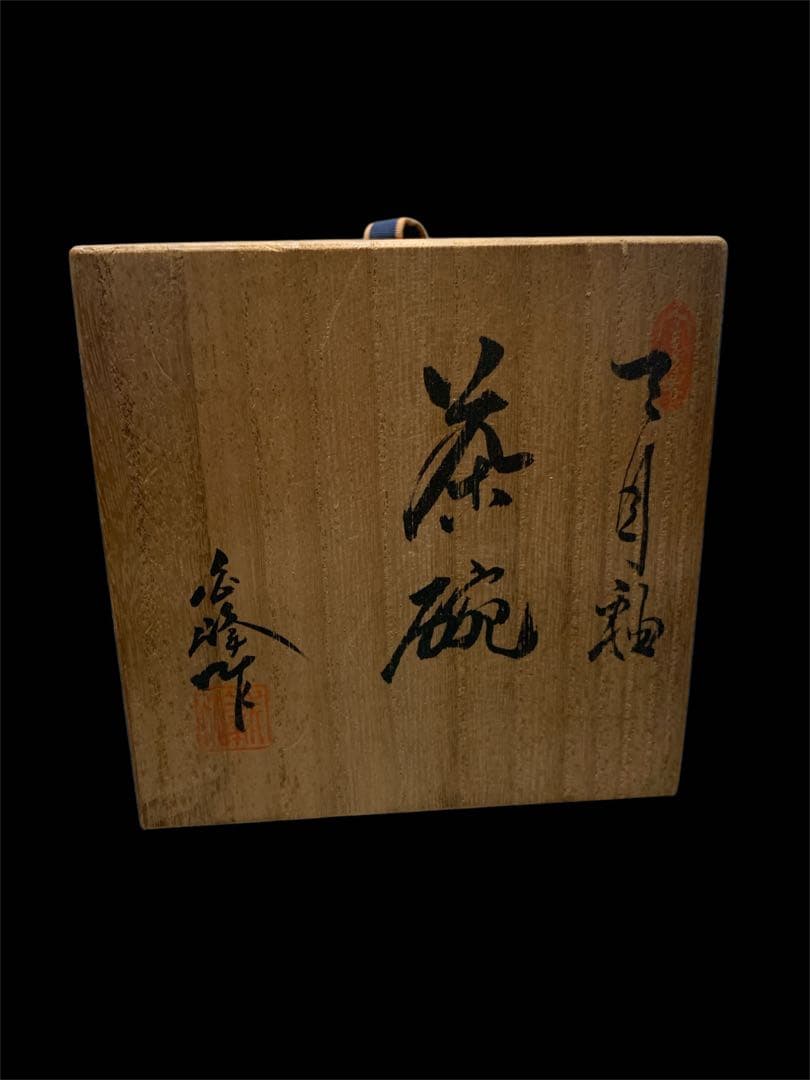 天目釉
茶碗
峰作